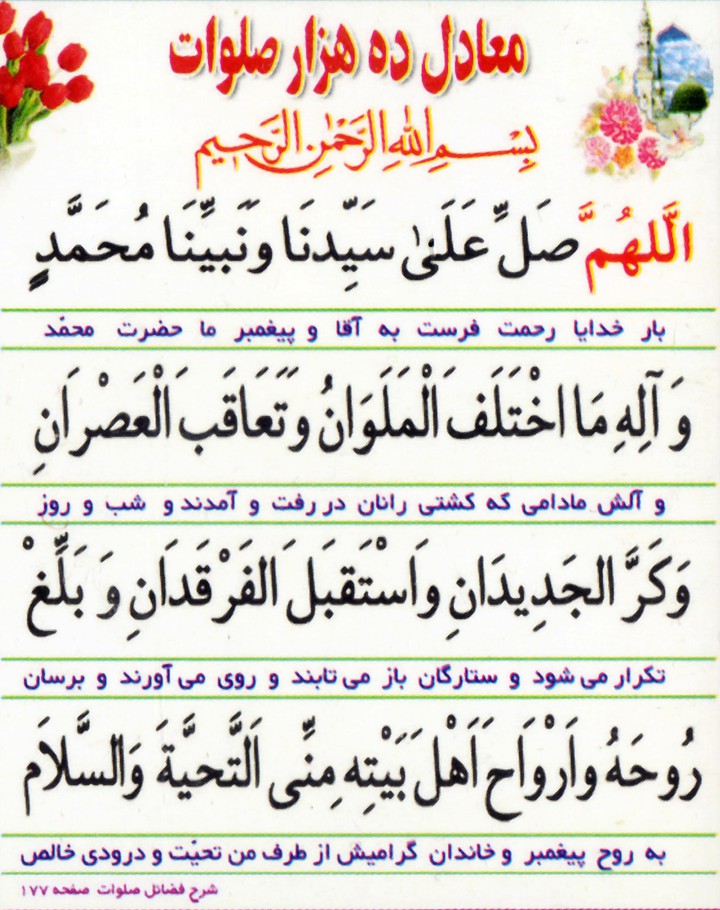 معادل ده هزار صلوات
بِسْمِ اللهِ الرَّحْمٰنِ الرَّحیمِ
اَللّهُمَّ صَلِّ عَلَیٰ سَیِّدِنَا وَنَبیِّنَا مُحَمَّدٍ
بار خدایا رحمت فرست به آقا و پیغمبر ما حضرت محمّد
وَ آلِهِ مَا اخْتَلَفَ الْمَلَوَانُ وَتَعَاقَبَ الْعَصْرَانِ
و آلش مادامی که کشتی رانان در رفت و آمدند و شب و روز
وَکَرَّ الجَدِیدَانِ وَاسْتَقبَلَ الفَرْقَدَانِ وَ بَلِّغْ
تکرار می شود و ستارگان باز می تابند و روی می آورند و برسان
رُوحَهُ وَاَرْوَاحَ اَهْلَ بَیْتِهِ مِنِّی اَلتَّحیَّةَ وَالسَّلاَم
به روح پیغمبر و خاندان گرامیش از طرف من تحیّت و درودی خالص
شرح فضائل صلوات صفحه ۱۷۷